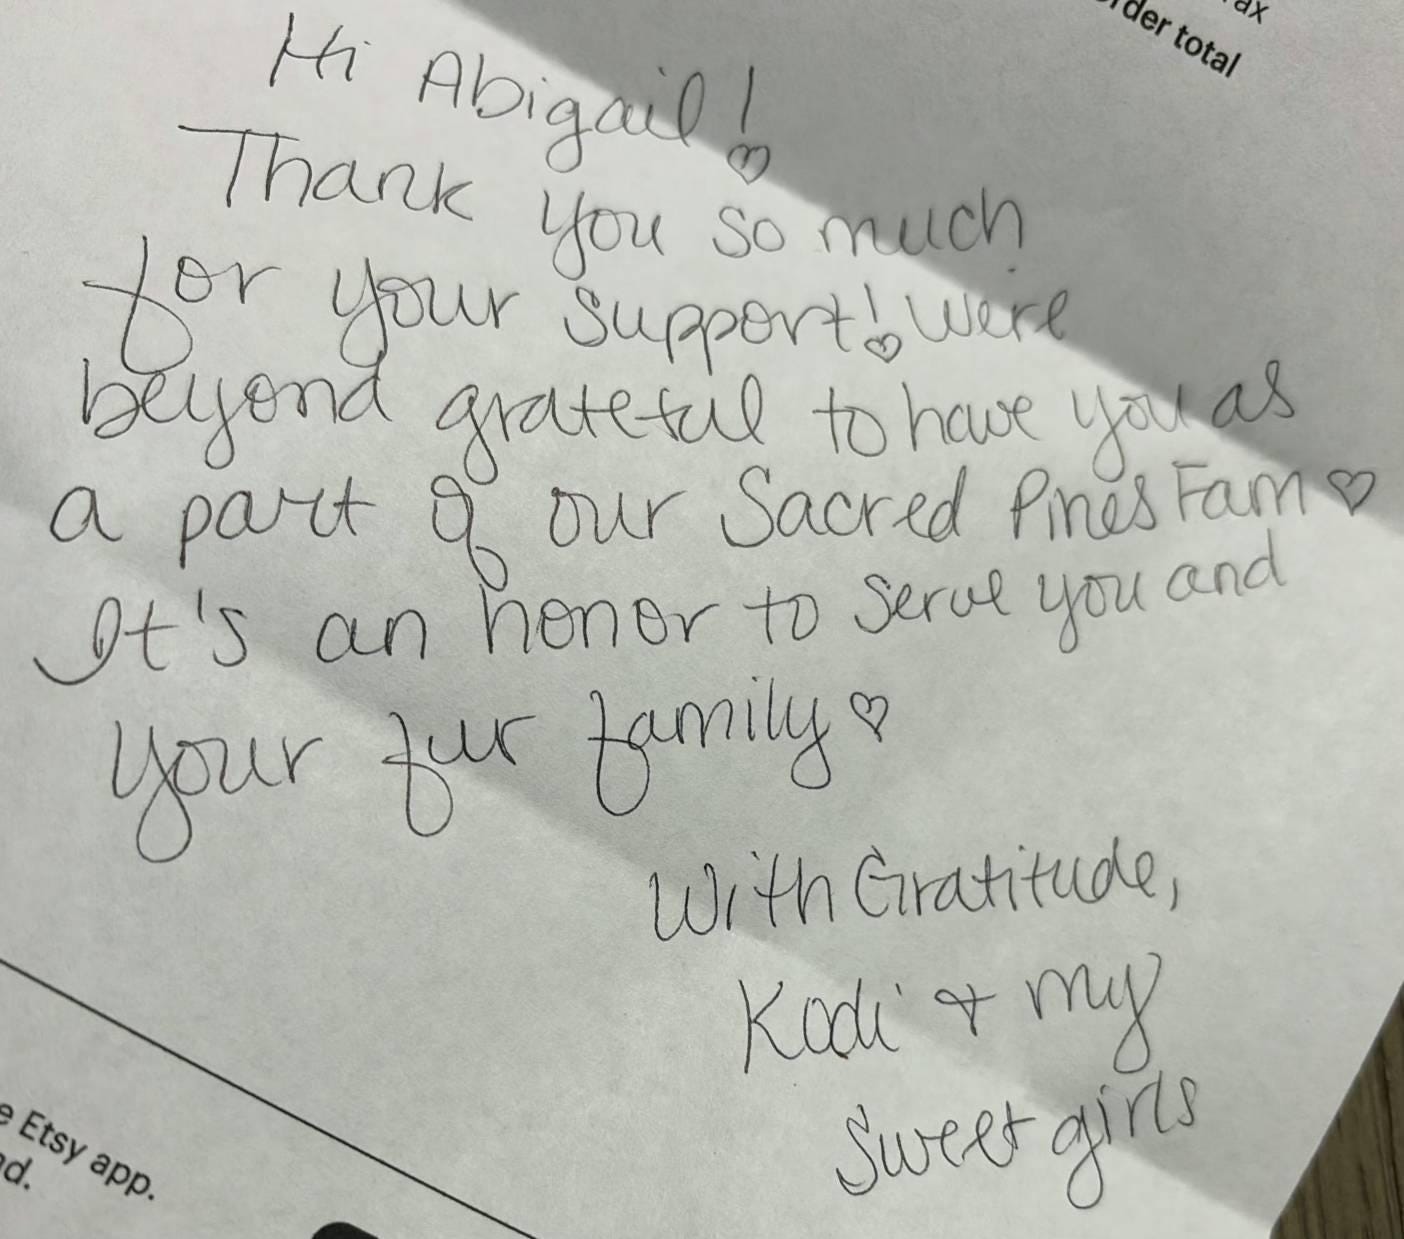 ax
rder total
Hi Abigail!
Thank you so much
for your support! Were
beyond grateful to have you as
a part of our Sacred Pines Fam ♡
It's an honor to serve you and
your fur family ♡
With Gratitude,
Kodi + my
sweet girls
e Etsy app.
nd.